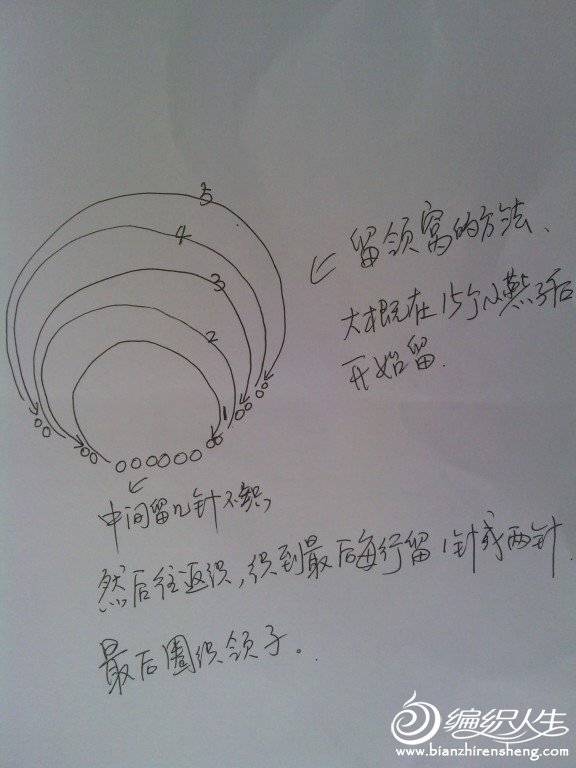 5
4
3
2
1
留领窝的方法、
大概在15个小燕子后
开始留.
中间留几针不织,
然后往返织,织到最后每行留1针或两针
最后圈织领子。
编织人生
www.bianzhirensheng.com